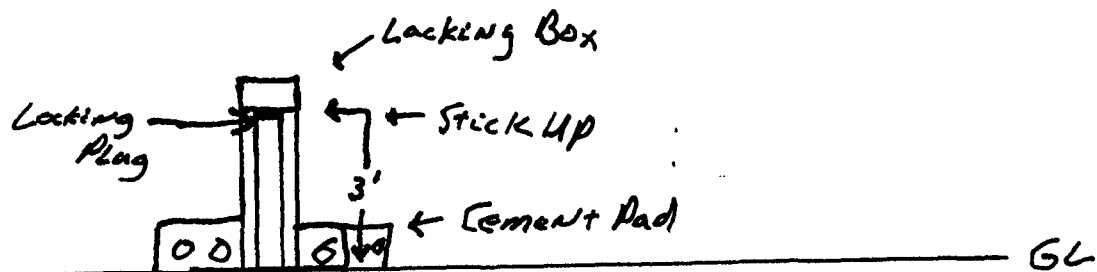 Locking Box
Locking
Plug
Stick Up
3'
Cement Pad
GL